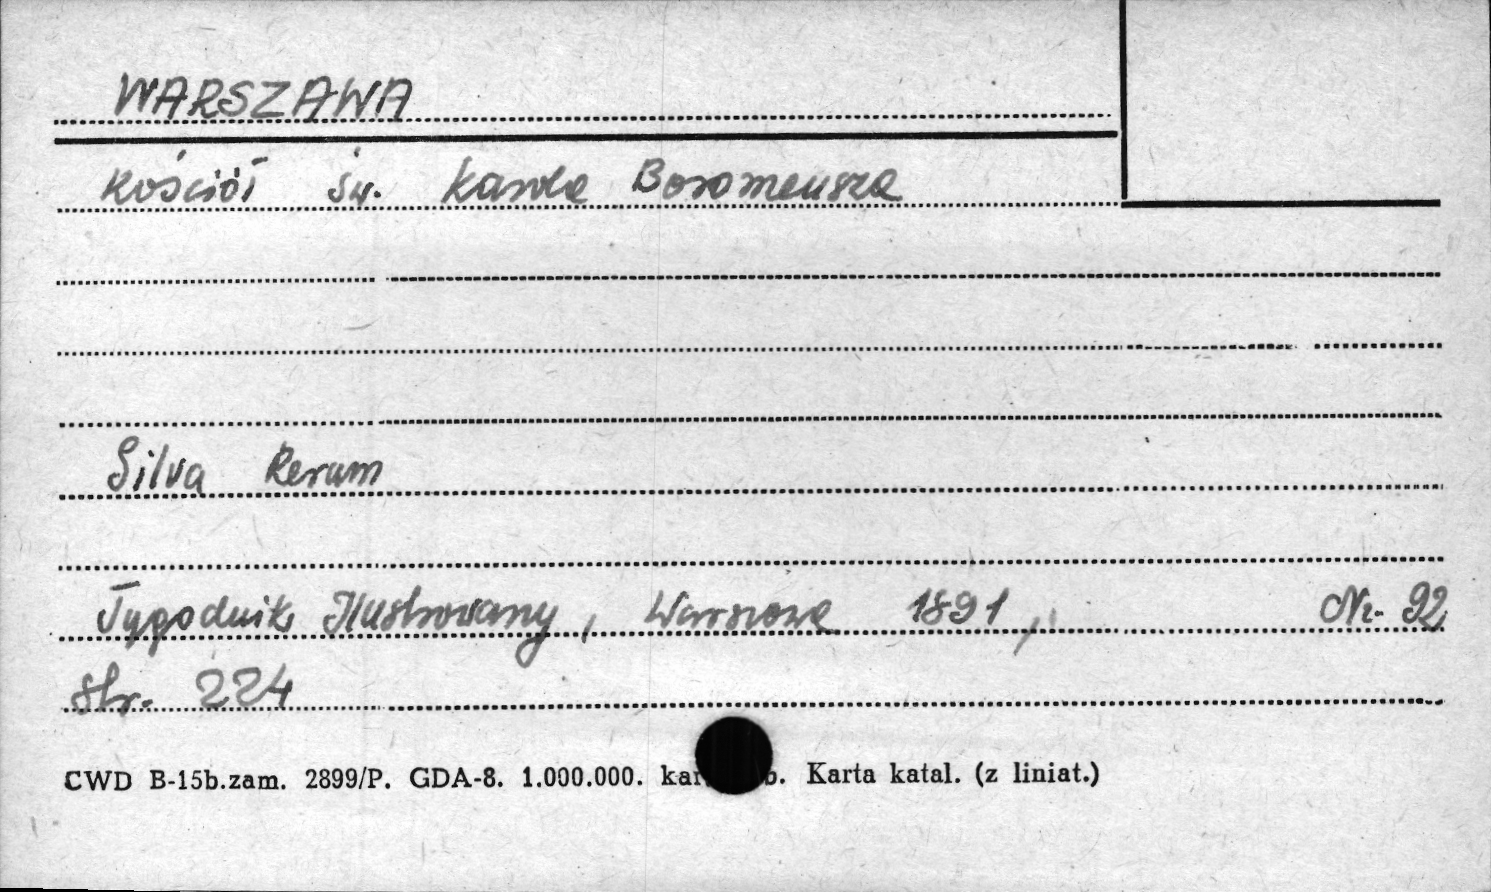 WARSZAWA
Kościół św. Karola Boromeusza
Silva Rerum
Tygodnik Ilustrowany, Warszawa 1891, Nr. 92
str. 224
CWD B-15b.zam. 2899/P. GDA-8. 1.000.000. Karta katal. (z liniat.)